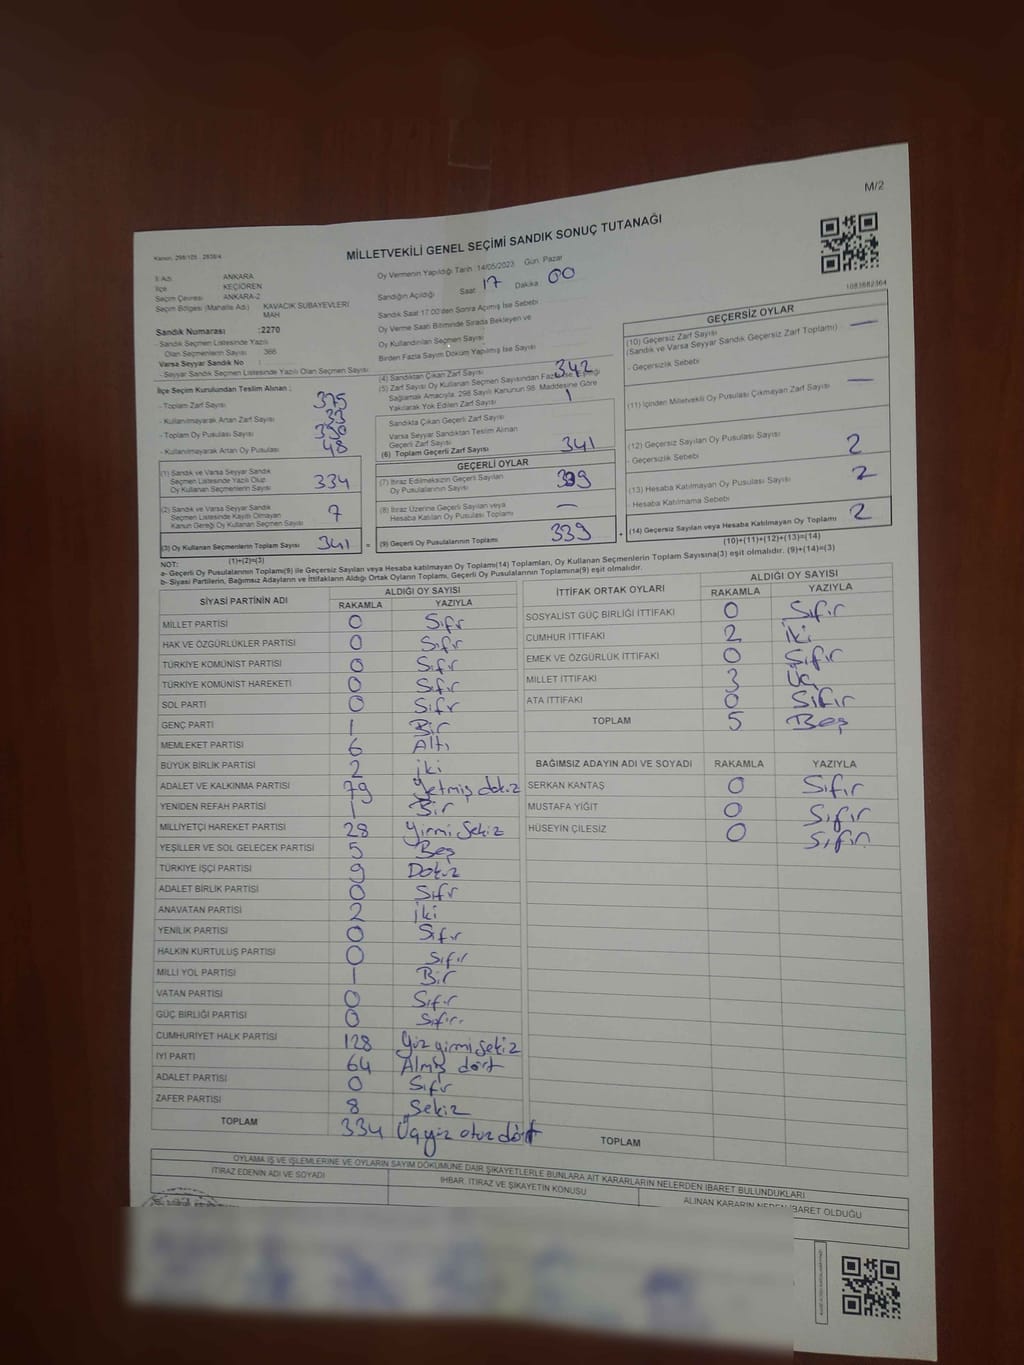 M/2
Kanun: 298/105 , 2839/4
MİLLETVEKİLİ GENEL SEÇİMİ SANDIK SONUÇ TUTANAĞI
1083682364
İl Adı ANKARA
İlçe KEÇİÖREN
Seçim Çevresi ANKARA-2
Seçim Bölgesi (Mahalle Adı) KAVACIK SUBAYEVLERİ MAH
Sandık Numarası :2270
- Sandık Seçmen Listesinde Yazılı
Olan Seçmenlerin Sayısı 366
Varsa Seyyar Sandık No :
- Seyyar Sandık Seçmen Listesinde Yazılı Olan Seçmen Sayısı
Oy Vermenin Yapıldığı Tarih : 14/05/2023 Gün: Pazar
Sandığın Açıldığı Saat: 17 Dakika: 00
Sandık Saat 17:00'den Sonra Açılmış İse Sebebi
Oy Verme Saati Bitiminde Sırada Bekleyen ve
Oy Kullandırılan Seçmen Sayısı
Birden Fazla Sayım Döküm Yapılmış İse Sayısı
İlçe Seçim Kurulundan Teslim Alınan ;
- Toplam Zarf Sayısı 375
- Kullanılmayarak Artan Zarf Sayısı 33
- Toplam Oy Pusulası Sayısı
- Kullanılmayarak Artan Oy Pusulası 48
(1) Sandık ve Varsa Seyyar Sandık
Seçmen Listesinde Yazılı Olup
Oy Kullanan Seçmenlerin Sayısı 334
(2) Sandık ve Varsa Seyyar Sandık
Seçmen Listesinde Kayıtlı Olmayan
Kanun Gereği Oy Kullanan Seçmen Sayısı 7
(3) Oy Kullanan Seçmenlerin Toplam Sayısı 341 =
(1)+(2)=(3)
(4) Sandıktan Çıkan Zarf Sayısı 342
(5) Zarf Sayısı Oy Kullanan Seçmen Sayısından Fazla ise, Eşitliği
Sağlamak Amacıyla, 298 Sayılı Kanunun 98. Maddesine Göre
Yakılarak Yok Edilen Zarf Sayısı 1
Sandıkta Çıkan Geçerli Zarf Sayısı
Varsa Seyyar Sandıktan Teslim Alınan
Geçerli Zarf Sayısı
(6) Toplam Geçerli Zarf Sayısı 341
GEÇERLİ OYLAR
(7) İtiraz Edilmeksizin Geçerli Sayılan
Oy Pusulalarının Sayısı 339
(8) İtiraz Üzerine Geçerli Sayılan veya
Hesaba Katılan Oy Pusulası Toplamı —
(9) Geçerli Oy Pusulalarının Toplamı 339 +
GEÇERSİZ OYLAR
(10) Geçersiz Zarf Sayısı —
(Sandık ve Varsa Seyyar Sandık Geçersiz Zarf Toplamı)
- Geçersizlik Sebebi
(11) İçinden Milletvekili Oy Pusulası Çıkmayan Zarf Sayısı —
(12) Geçersiz Sayılan Oy Pusulası Sayısı 2
- Geçersizlik Sebebi
(13) Hesaba Katılmayan Oy Pusulası Sayısı 2
- Hesaba Katılmama Sebebi
(14) Geçersiz Sayılan veya Hesaba Katılmayan Oy Toplamı 2
(10)+(11)+(12)+(13)=(14)
NOT:
a- Geçerli Oy Pusulalarının Toplamı(9) ile Geçersiz Sayılan veya Hesaba katılmayan Oy Toplamı(14) Toplamları, Oy Kullanan Seçmenlerin Toplam Sayısına(3) eşit olmalıdır. (9)+(14)=(3)
b- Siyasi Partilerin, Bağımsız Adayların ve İttifakların Aldığı Ortak Oyların Toplamı, Geçerli Oy Pusulalarının Toplamına(9) eşit olmalıdır.
SİYASİ PARTİNİN ADI ALDIĞI OY SAYISI
RAKAMLA YAZIYLA
MİLLET PARTİSİ 0 Sıfır
HAK VE ÖZGÜRLÜKLER PARTİSİ 0 Sıfır
TÜRKİYE KOMÜNİST PARTİSİ 0 Sıfır
TÜRKİYE KOMÜNİST HAREKETİ 0 Sıfır
SOL PARTİ 0 Sıfır
GENÇ PARTİ 1 Bir
MEMLEKET PARTİSİ 6 Altı
BÜYÜK BİRLİK PARTİSİ 2 iki
ADALET VE KALKINMA PARTİSİ 79 Yetmiş dokuz
YENİDEN REFAH PARTİSİ 1 Bir
MİLLİYETÇİ HAREKET PARTİSİ 28 Yirmi Sekiz
YEŞİLLER VE SOL GELECEK PARTİSİ 5 Beş
TÜRKİYE İŞÇİ PARTİSİ 9 Dokuz
ADALET BİRLİK PARTİSİ 0 Sıfır
ANAVATAN PARTİSİ 2 iki
YENİLİK PARTİSİ 0 Sıfır
HALKIN KURTULUŞ PARTİSİ 0 Sıfır
MİLLİ YOL PARTİSİ 1 Bir
VATAN PARTİSİ 0 Sıfır
GÜÇ BİRLİĞİ PARTİSİ 0 Sıfır.
CUMHURİYET HALK PARTİSİ 128 Yüz yirmi Sekiz
İYİ PARTİ 64 Almış dört
ADALET PARTİSİ 0 Sıfır
ZAFER PARTİSİ 8 Sekiz
TOPLAM 334 Üçyüz otuz dört
İTTİFAK ORTAK OYLARI ALDIĞI OY SAYISI
RAKAMLA YAZIYLA
SOSYALİST GÜÇ BİRLİĞİ İTTİFAKI 0 Sıfır
CUMHUR İTTİFAKI 2 iki
EMEK VE ÖZGÜRLÜK İTTİFAKI 0 Sıfır
MİLLET İTTİFAKI 3 Üç
ATA İTTİFAKI 0 Sıfır
TOPLAM 5 Beş
BAĞIMSIZ ADAYIN ADI VE SOYADI RAKAMLA YAZIYLA
SERKAN KANTAŞ 0 Sıfır
MUSTAFA YİĞİT 0 Sıfır
HÜSEYİN ÇİLESİZ 0 Sıfır
TOPLAM
OYLAMA İŞ VE İŞLEMLERİNE VE OYLARIN SAYIM DÖKÜMÜNE DAİR ŞİKAYETLERLE BUNLARA AİT KARARLARIN NELERDEN İBARET BULUNDUKLARI
İTİRAZ EDENİN ADI VE SOYADI İHBAR, İTİRAZ VE ŞİKAYETİN KONUSU ALINAN KARARIN NEDEN İBARET OLDUĞU